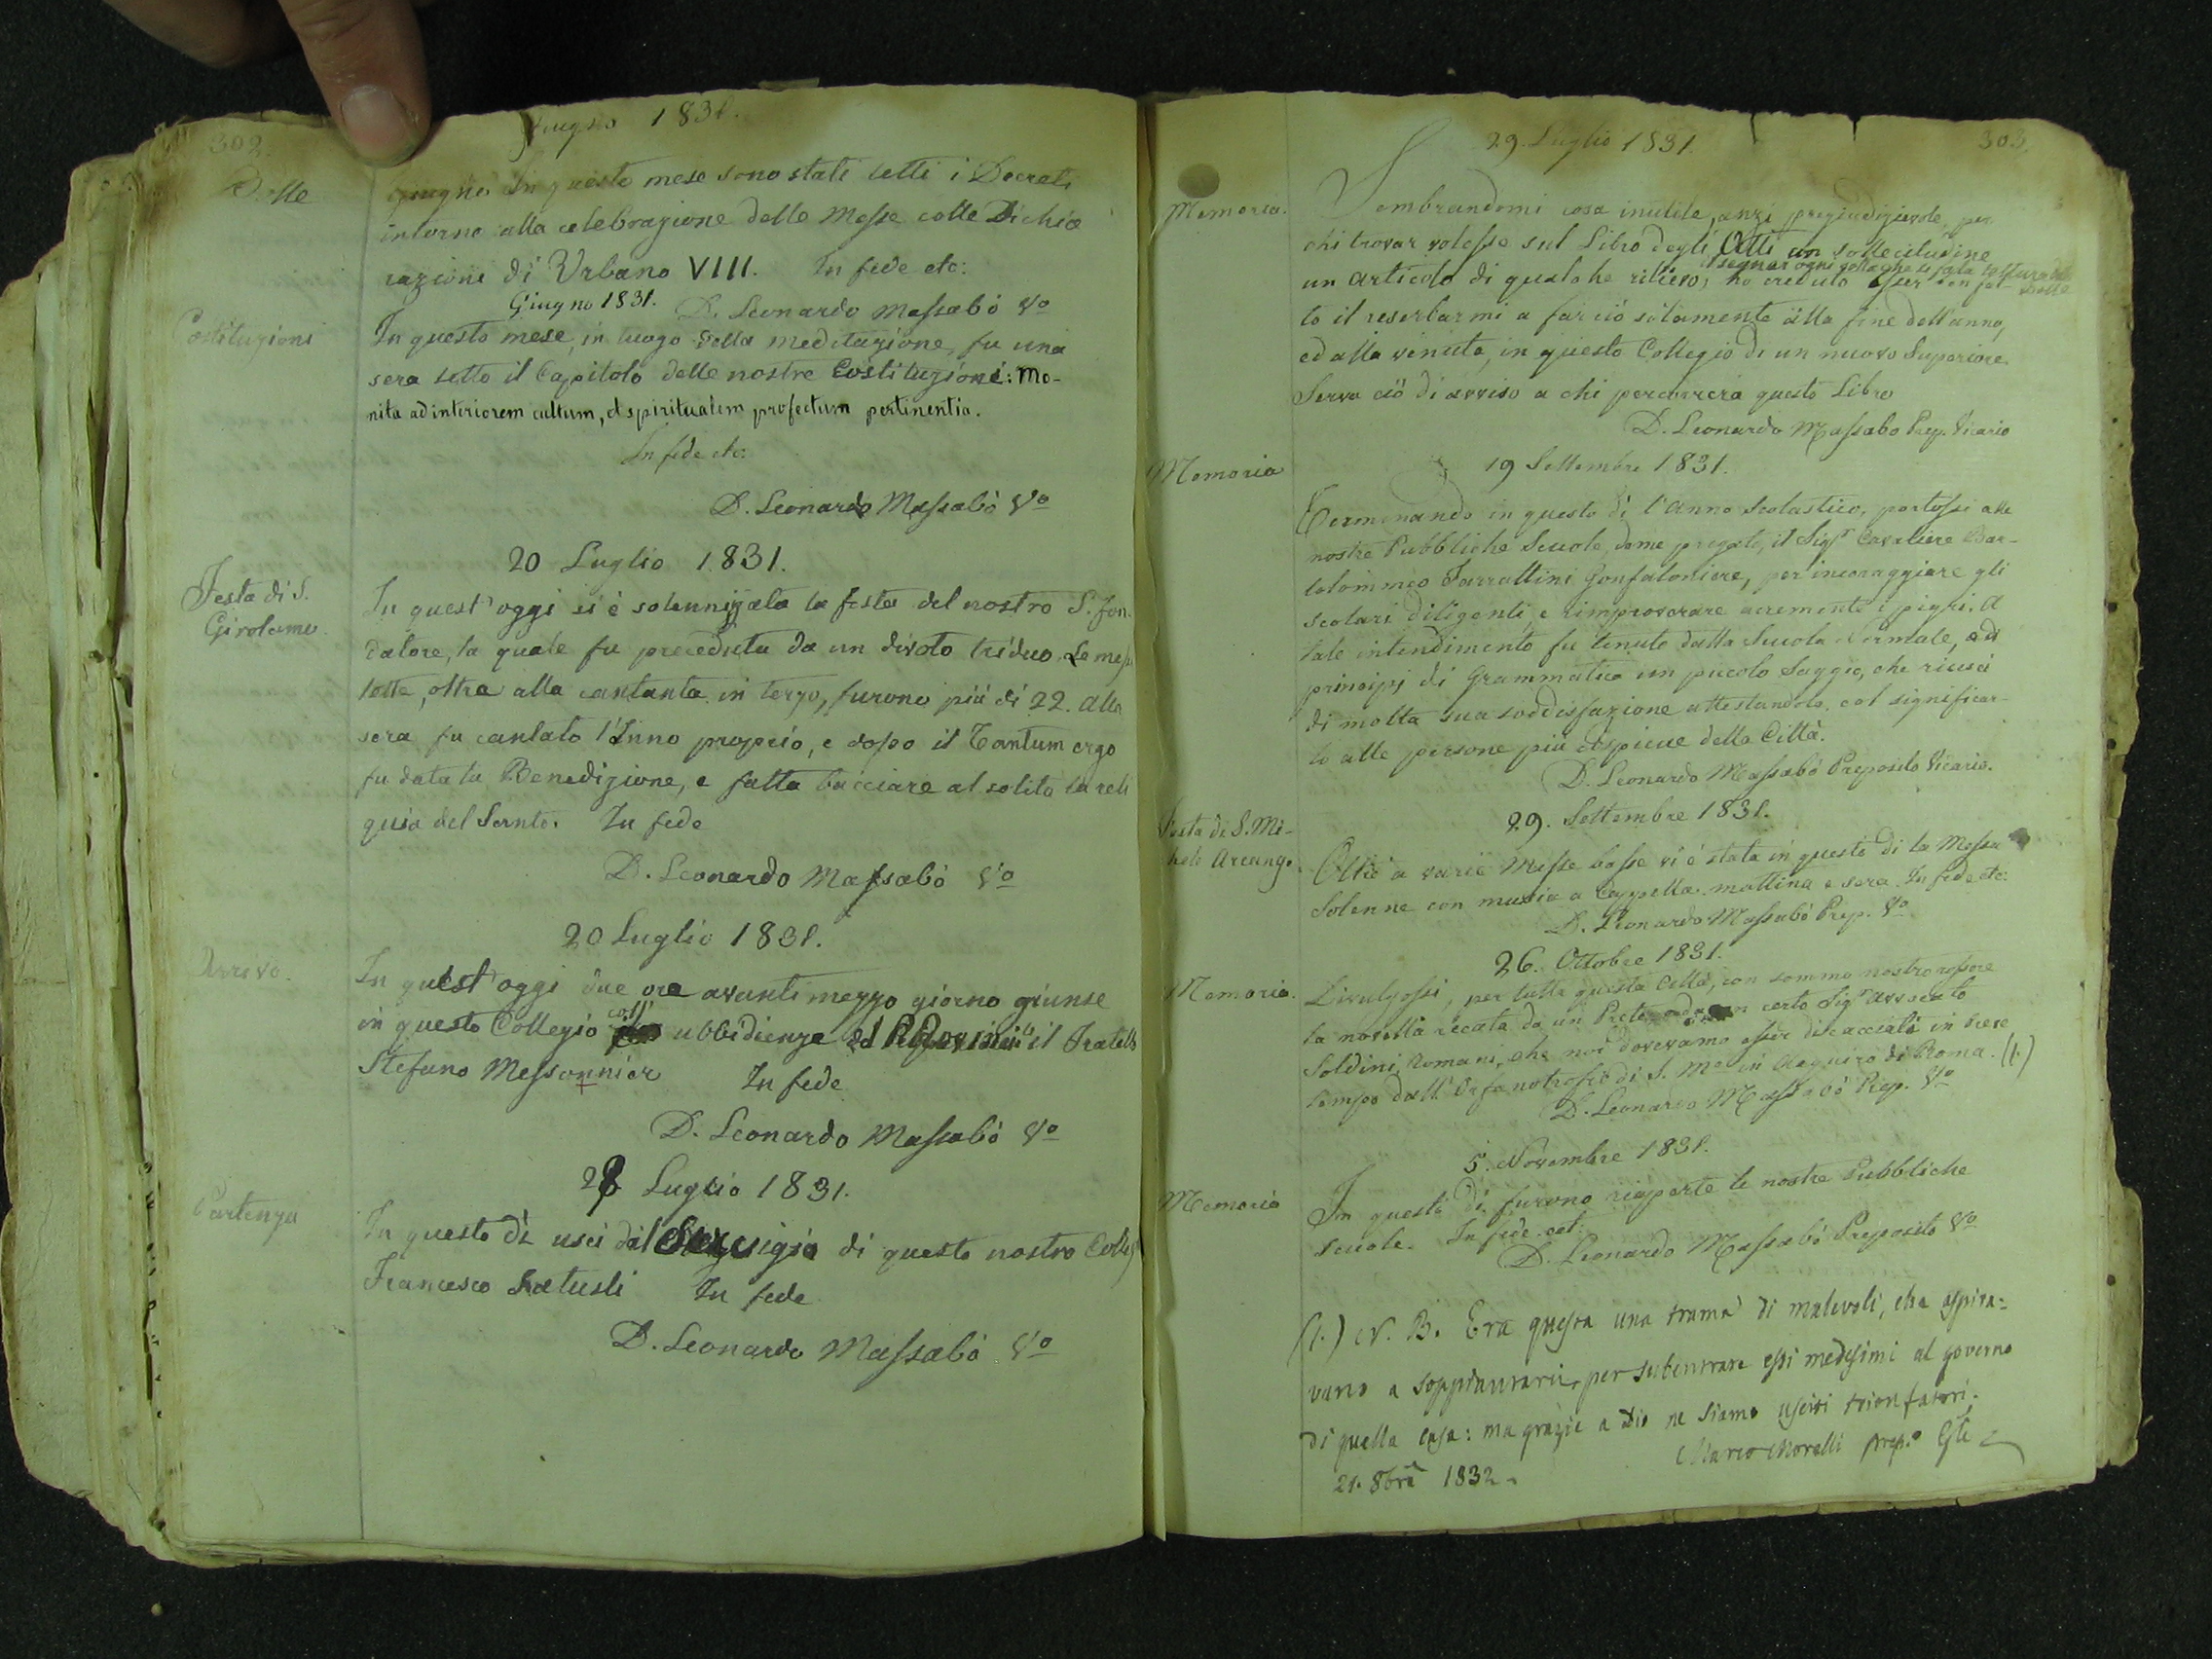 302.
Giugno 1831.
Bolle
Giugno. In questo mese sono stati letti i Decreti
intorno alla celebrazione delle Messe colle Dichia
razioni di Urbano VIII. In fede etc:
Giugno 1831. D. Leonardo Massabò Vo
Costituzioni
In questo mese, in luogo della meditazione, fu una
sera letto il Capitolo delle nostre Costituzioni: Mo-
nita ad interiorem cultum, et spiritualem profectum pertinentia.
In fede etc:
D. Leonardo Massabò Vo
20 Luglio 1831.
Festa di S.
Girolamo.
In quest'oggi si è solennizzata la festa del nostro S. fon.
datore, la quale fu preceduta da un divoto triduo. Le mess
lette, oltre alla cantanta in terzo, furono più di 22. Alla
sera fu cantato l'Inno proprio, e dopo il Tantum ergo
fu data la Benedizione, e fatta bacciare al solito la reli
quia del Santo. In fede
D. Leonardo Massabò Vo
20 Luglio 1831.
Arrivo.
In quest'oggi due ore avanti mezzo giorno giunse
in questo Collegio coll' ubbidienza del il Fratello
Stefano Messonnier In fede
D. Leonardo Massabò Vo
28 Luglio 1831.
Partenza
In questo dì uscì dal Servigio di questo nostro Colleg
Francesco In fede
D. Leonardo Massabò Vo
29. Luglio 1831.
303.
Memoria.
Sembrandomi cosa inutile, anzi pregiudizievole, per
chi trovar volesse sul Libro degli Atti con sollecitudine
un articolo di qualche rilievo, il segnar ogni volta che si fa la lettura delle Bolle
ho creduto esser ben fat-
to il reserbarmi a far ciò solamente alla fine dell'anno,
ed alla venuta, in questo Collegio di un nuovo Superiore
Serva ciò di avviso a chi percorrerà questo Libro
D. Leonardo Massabò Prep. Vicario
Memoria
19 Settembre 1831.
Terminando in questo dì l'anno Scolastico, portossi alle
nostre Pubbliche Scuole, come pregato, il Sigr Cavaliere Bar-
tolommeo Farrattini Gonfaloniere, per incoraggiare gli
scolari diligenti, e rimproverare acremente i pigri. A
tale intendimento fu tenuto dalla Scuola Normale, e di
principj di Grammatica un piccolo Saggio, che riuscì
di molta sua soddisfazione attestandolo, col significar-
lo alle persone più cospicue della Città.
D. Leonardo Massabò Preposito Vicario.
Festa di S. Mi-
chele Arcang.
29. Settembre 1831.
Oltre a varie Messe basse vi è stata in questo dì la Messa
Solenne con musica a Cappella mattina e sera. In fede etc:
D. Leonardo Massabò Prep. Vo
26. Ottobre 1831.
Memoria.
Divulgossi, per tutta questa Città, con sommo nostro rossore
la novella recata da un Prete, e da un certo Sigr Avvocato
Soldini, Romani, che noi dovevamo esser discacciati in breve
tempo dall'Orfanotrofio di S. Ma in Aquiro di Roma. (1.)
D. Leonardo Massabò Prep. Vo
5. Novembre 1831.
Memoria
In questo dì furono riaperte le nostre Pubbliche
scuole. In fede cet:
D. Leonardo Massabò Preposito Vo
(1.) N. B. Era questa una trama di malevoli, che aspira=
vano a soppiantarci, per subentrare essi medesimi al governo
di quella casa: ma grazie a dio ne siamo usciti trionfatori.
21. 8bre 1832. Marco Morelli prep.o Gle